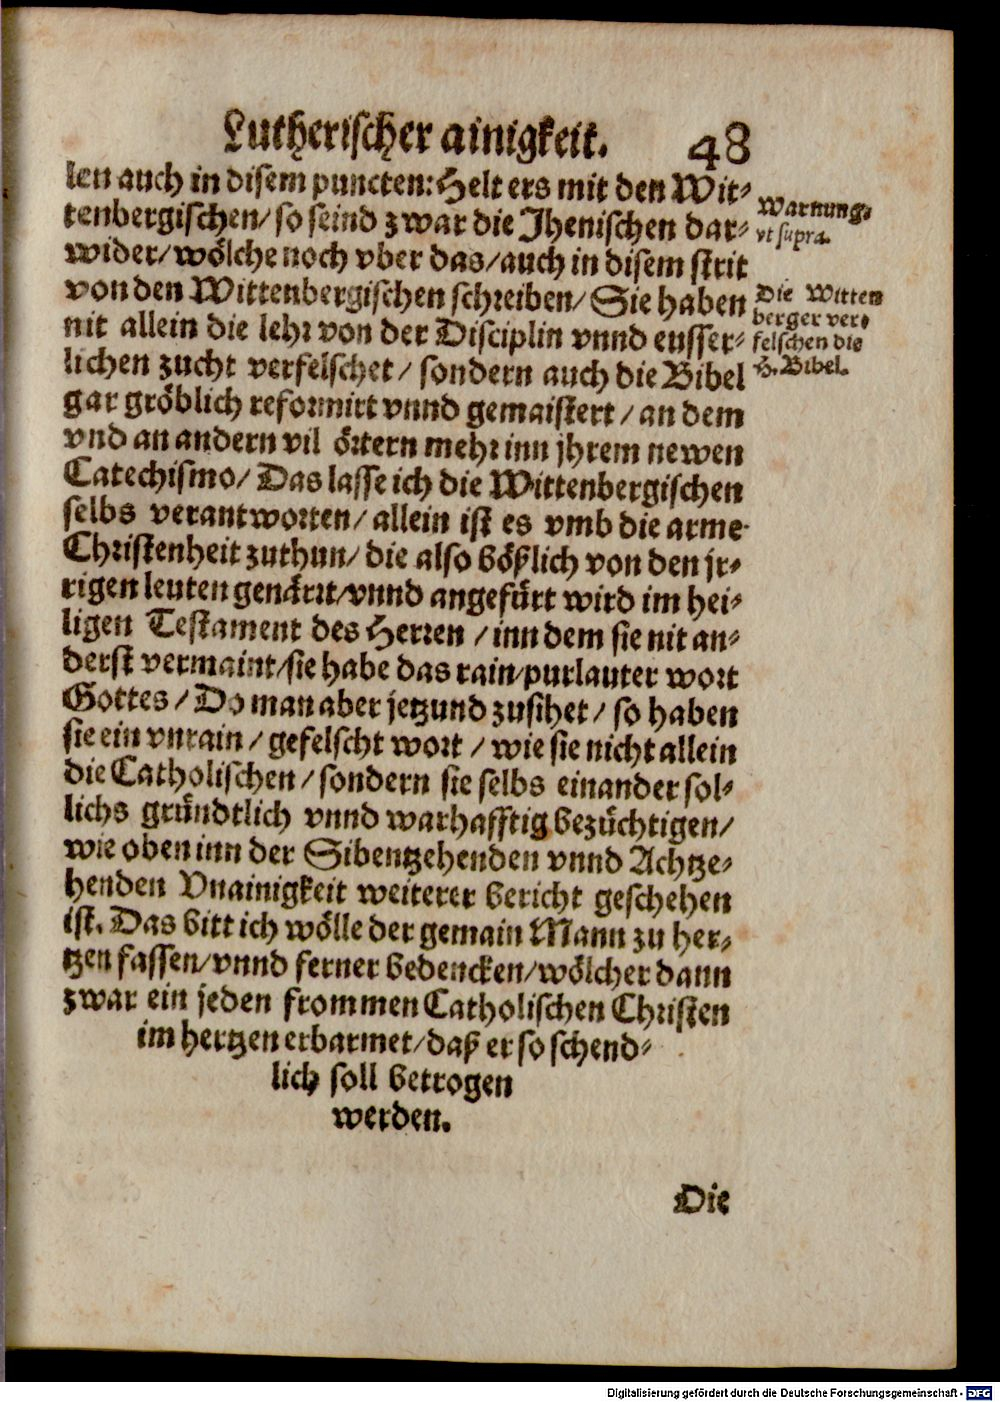 Lutherischer ainigkeit. 48
len auch in disem puncten: Helt ers mit den Wit-
tenbergischen/ so seind zwar die Jhenischen dar-
wider/ wölche noch vber das/ auch in disem strit
von den Wittenbergischen schreiben/ Sie haben
nit allein die lehr von der Disciplin vnnd eusser-
lichen zucht verfelschet/ sondern auch die Bibel
gar gröblich reformirt vnnd gemaistert/ an dem
vnd an andern vil örtern mehr inn jhrem newen
Catechismo/ Das lasse ich die Wittenbergischen
selbs verantworten/ allein ist es vmb die arme
Christenheit zuthun/ die also bößlich von den jr-
rigen leuten genärrt/ vnnd angefürt wird im hei-
ligen Testament des Herren/ inn dem sie nit an-
derst vermaint/ sie habe das rain/ purlauter wort
Gottes/ Do man aber jetzund zusihet/ so haben
sie ein vnrain/ gefelscht wort/ wie sie nicht allein
die Catholischen/ sondern sie selbs einander sol-
lichs gründtlich vnnd warhafftig bezüchtigen/
wie oben inn der Sibentzehenden vnnd Achtze-
henden Vnainigkeit weiterer bericht geschehen
ist. Das bitt ich wölle der gemain Mann zu her-
tzen fassen/ vnnd ferner bedencken/ wölcher dann
zwar ein jeden frommen Catholischen Christen
im hertzen erbarmet/ daß er so schend-
lich soll betrogen
werden.
Warnung.
vt supra.
Die Witten
berger ver-
felschen die
H. Bibel.
Die
Digitalisierung gefördert durch die Deutsche Forschungsgemeinschaft - DFG